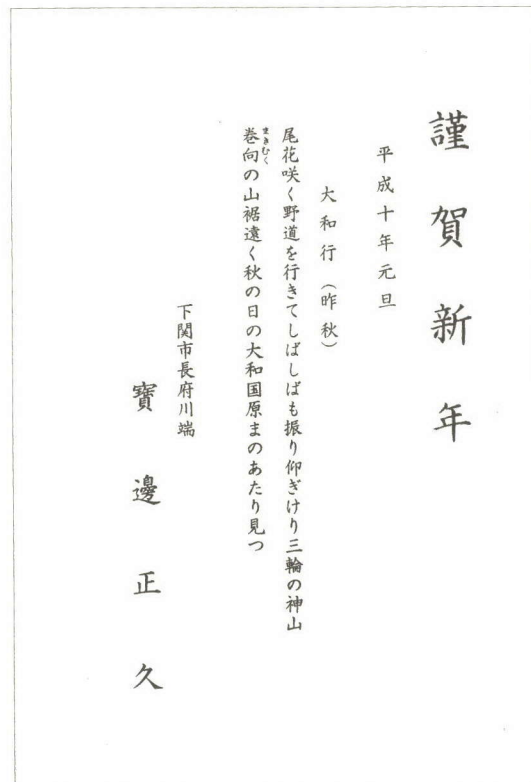 謹賀新年
平成十年元旦
大和行（昨秋）
尾花咲く野道を行きてしばしばも振り仰ぎけり三輪の神山
巻向の山裾遠く秋の日の大和国原まのあたり見つ
まきむく
下関市長府川端
寶邊正久